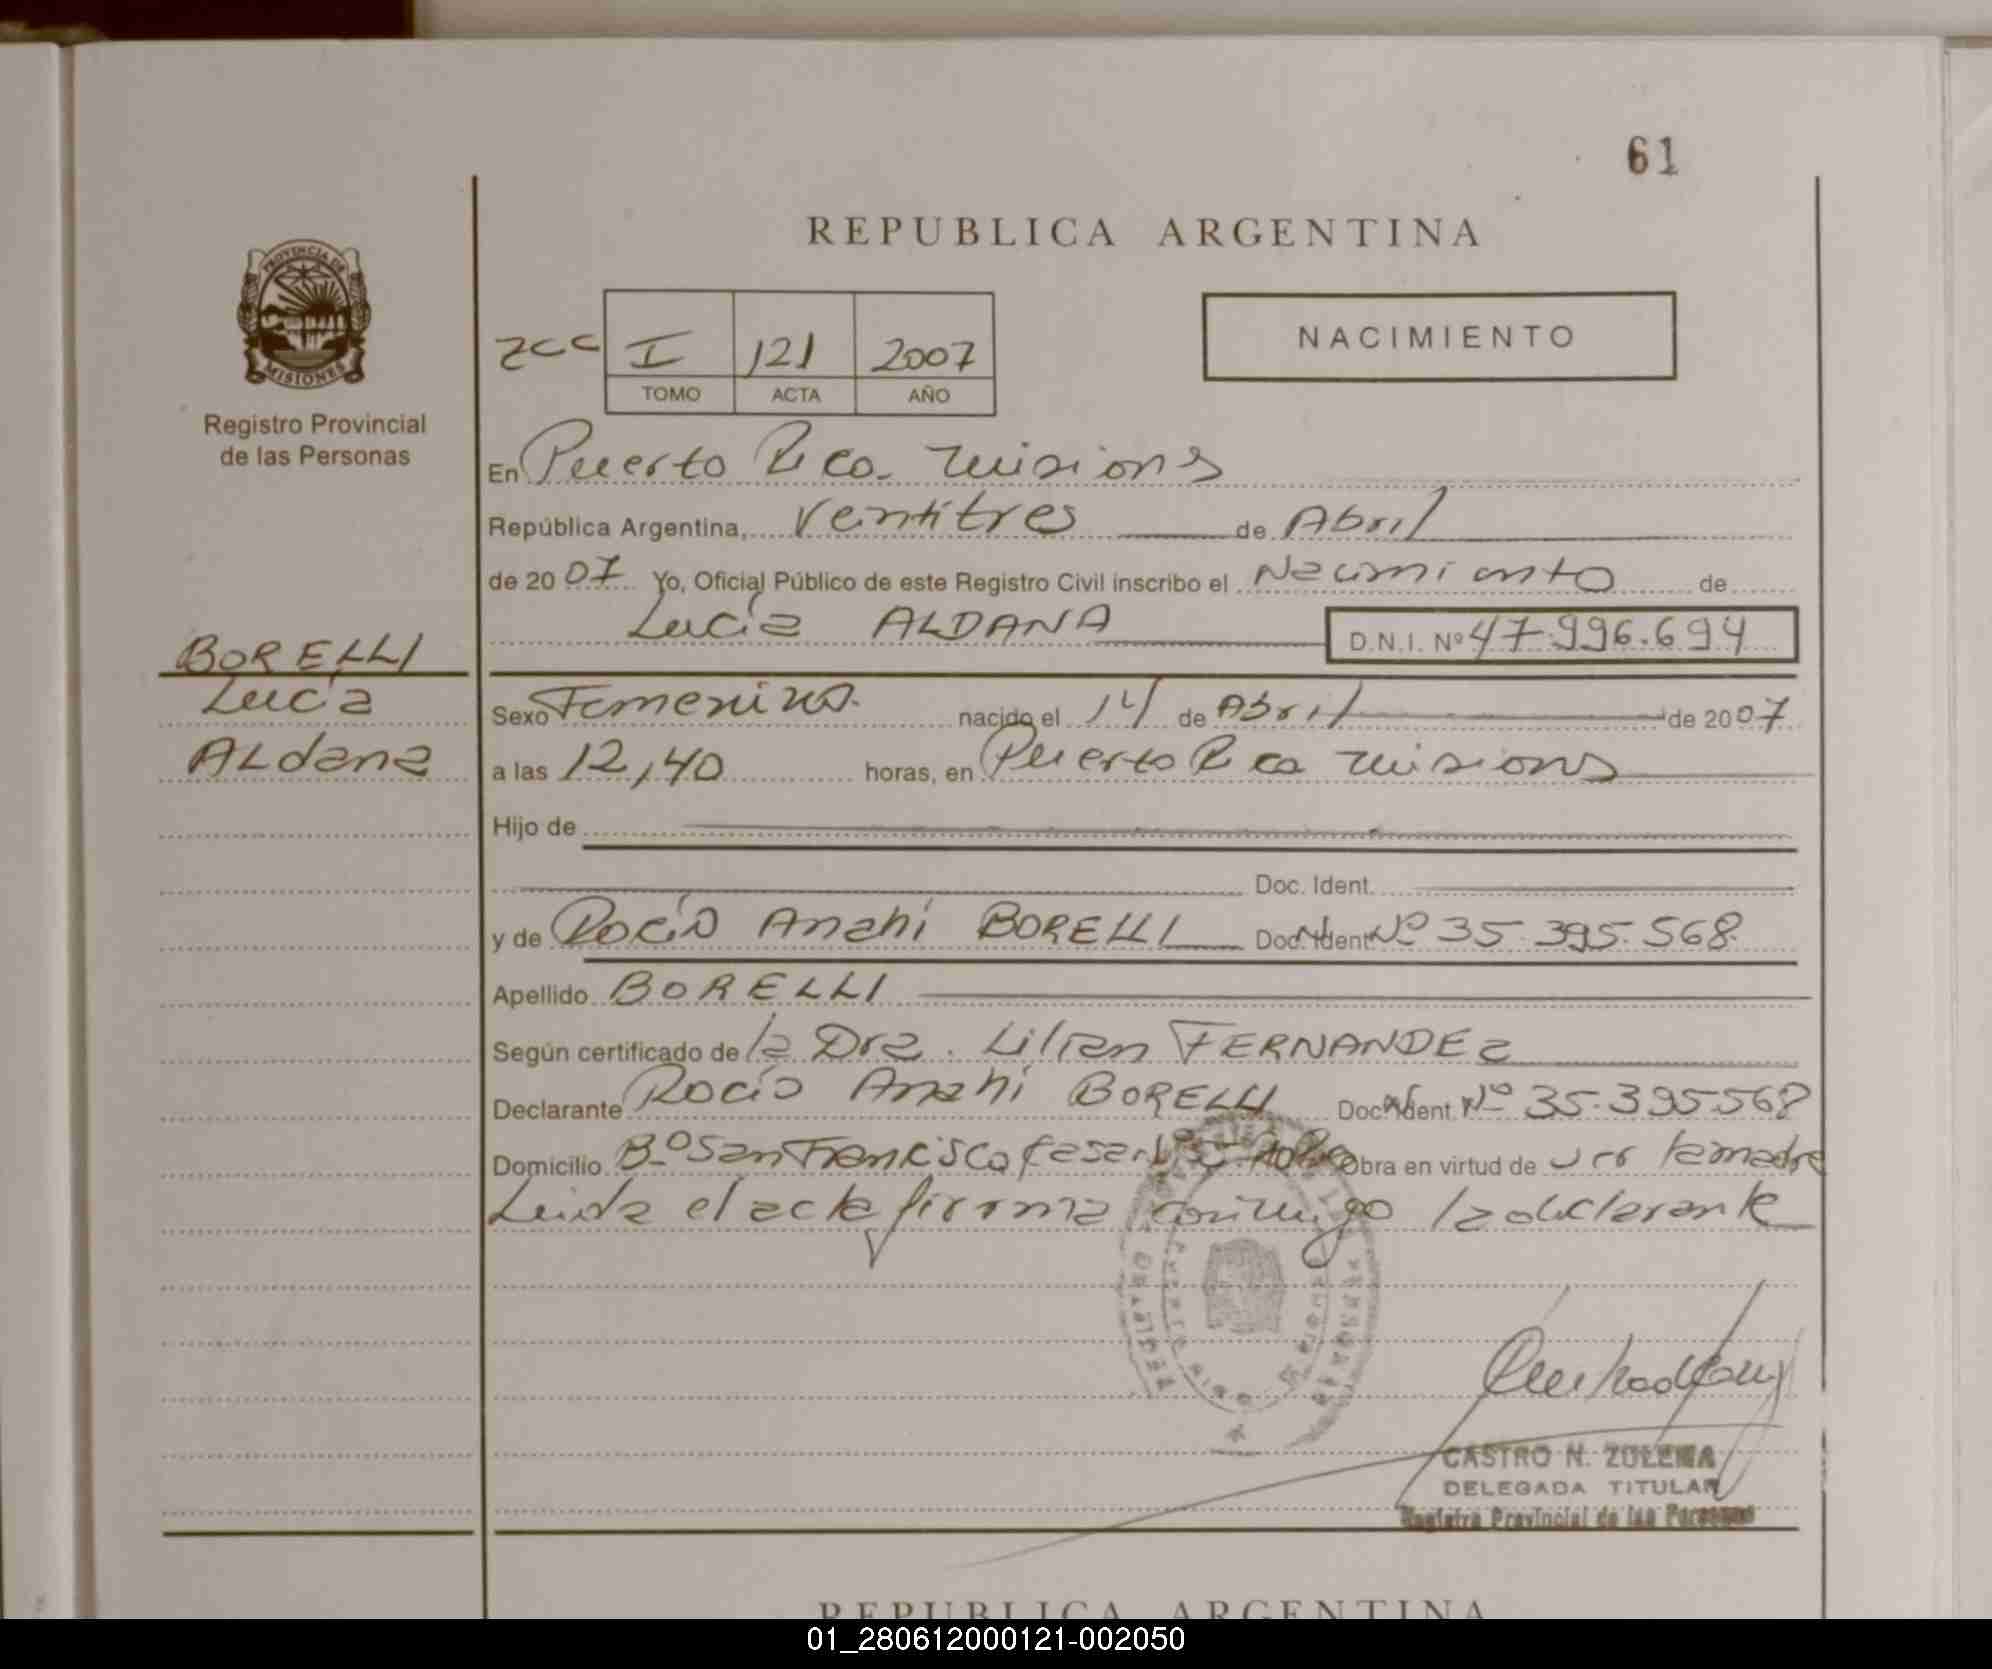 61
REPUBLICA ARGENTINA
PROVINCIA DE
MISIONES
Registro Provincial
de las Personas
zcc I 121 2007
TOMO ACTA AÑO
NACIMIENTO
En Puerto Rico. Misiones
República Argentina, Veintitres de Abril
de 2007 Yo, Oficial Público de este Registro Civil inscribo el Nacimiento de
Lucía ALDANA D.N.I. Nº 47.996.694
BORELLI
Lucía
Aldana
Sexo Femenino. nacido el 14 de Abril de 2007
a las 12,40 horas, en Puerto Rico Misiones
Hijo de
Doc. Ident.
y de Rocío Anahí BORELLI Doc. Ident. Nº 35.395.568.
Apellido BORELLI
Según certificado de la Dra. Lilian FERNANDEz
Declarante Rocío Anahí BORELLI Doc. Ident. Nº 35.395568
Domicilio Bº San Francisco Obra en virtud de ser la madre
Leida el acta firma conmigo la declarante
CASTRO N. ZULEMA
DELEGADA TITULAR
Registro Provincial de las Personas
REPUBLICA ARGENTINA
01_280612000121-002050